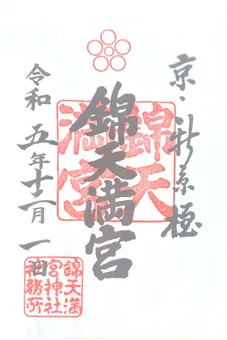 京・新京極
錦天満宮
錦天満宮
令和五年十二月一日
錦天満
宮神社
社務所